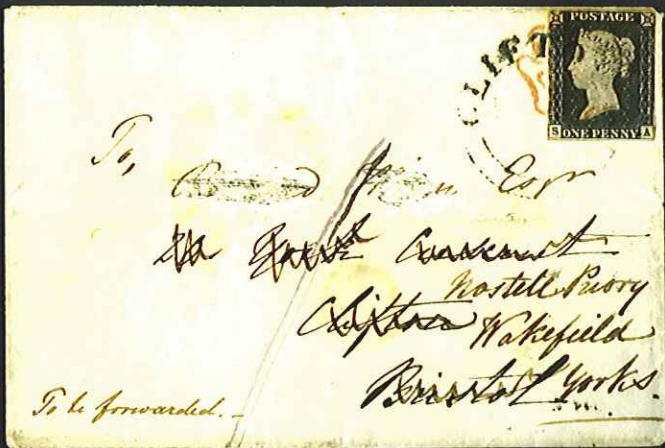 POSTAGE
S ONE PENNY A
CLIFT
To,
Esqr
Nostell Priory
Clifton Wakefield
Bristol Yorks.
To be forwarded.-